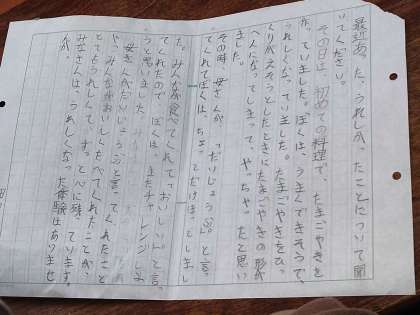 最近あった、うれしかったことについて聞
いてください。
その日は、初めての料理で、たまごやきを
作っていました。ぼくは、うまくできそうで、
うれしくなっていました。たまごやきをひっ
くりがえそうとしたときにたまごやきの形が
へんになってしまって、やっちゃったと思い
ました。
その時、母さんが「だいじょうぶ。」と言っ
てくれてぼくは、ちょっとだけほっとしまし
た。みんなが食べてくれて「おいしい。」と言っ
てくれたので、ぼくは、またチャレンジしよ
うと思いました。
母さんがだいじょうぶと言ってくれたこと
や、みんながおいしくたべてくれたことが、
とてもうれしくて、ずっと心に残っています。
みなさんは、うれしくなった体験はありませ
んか。